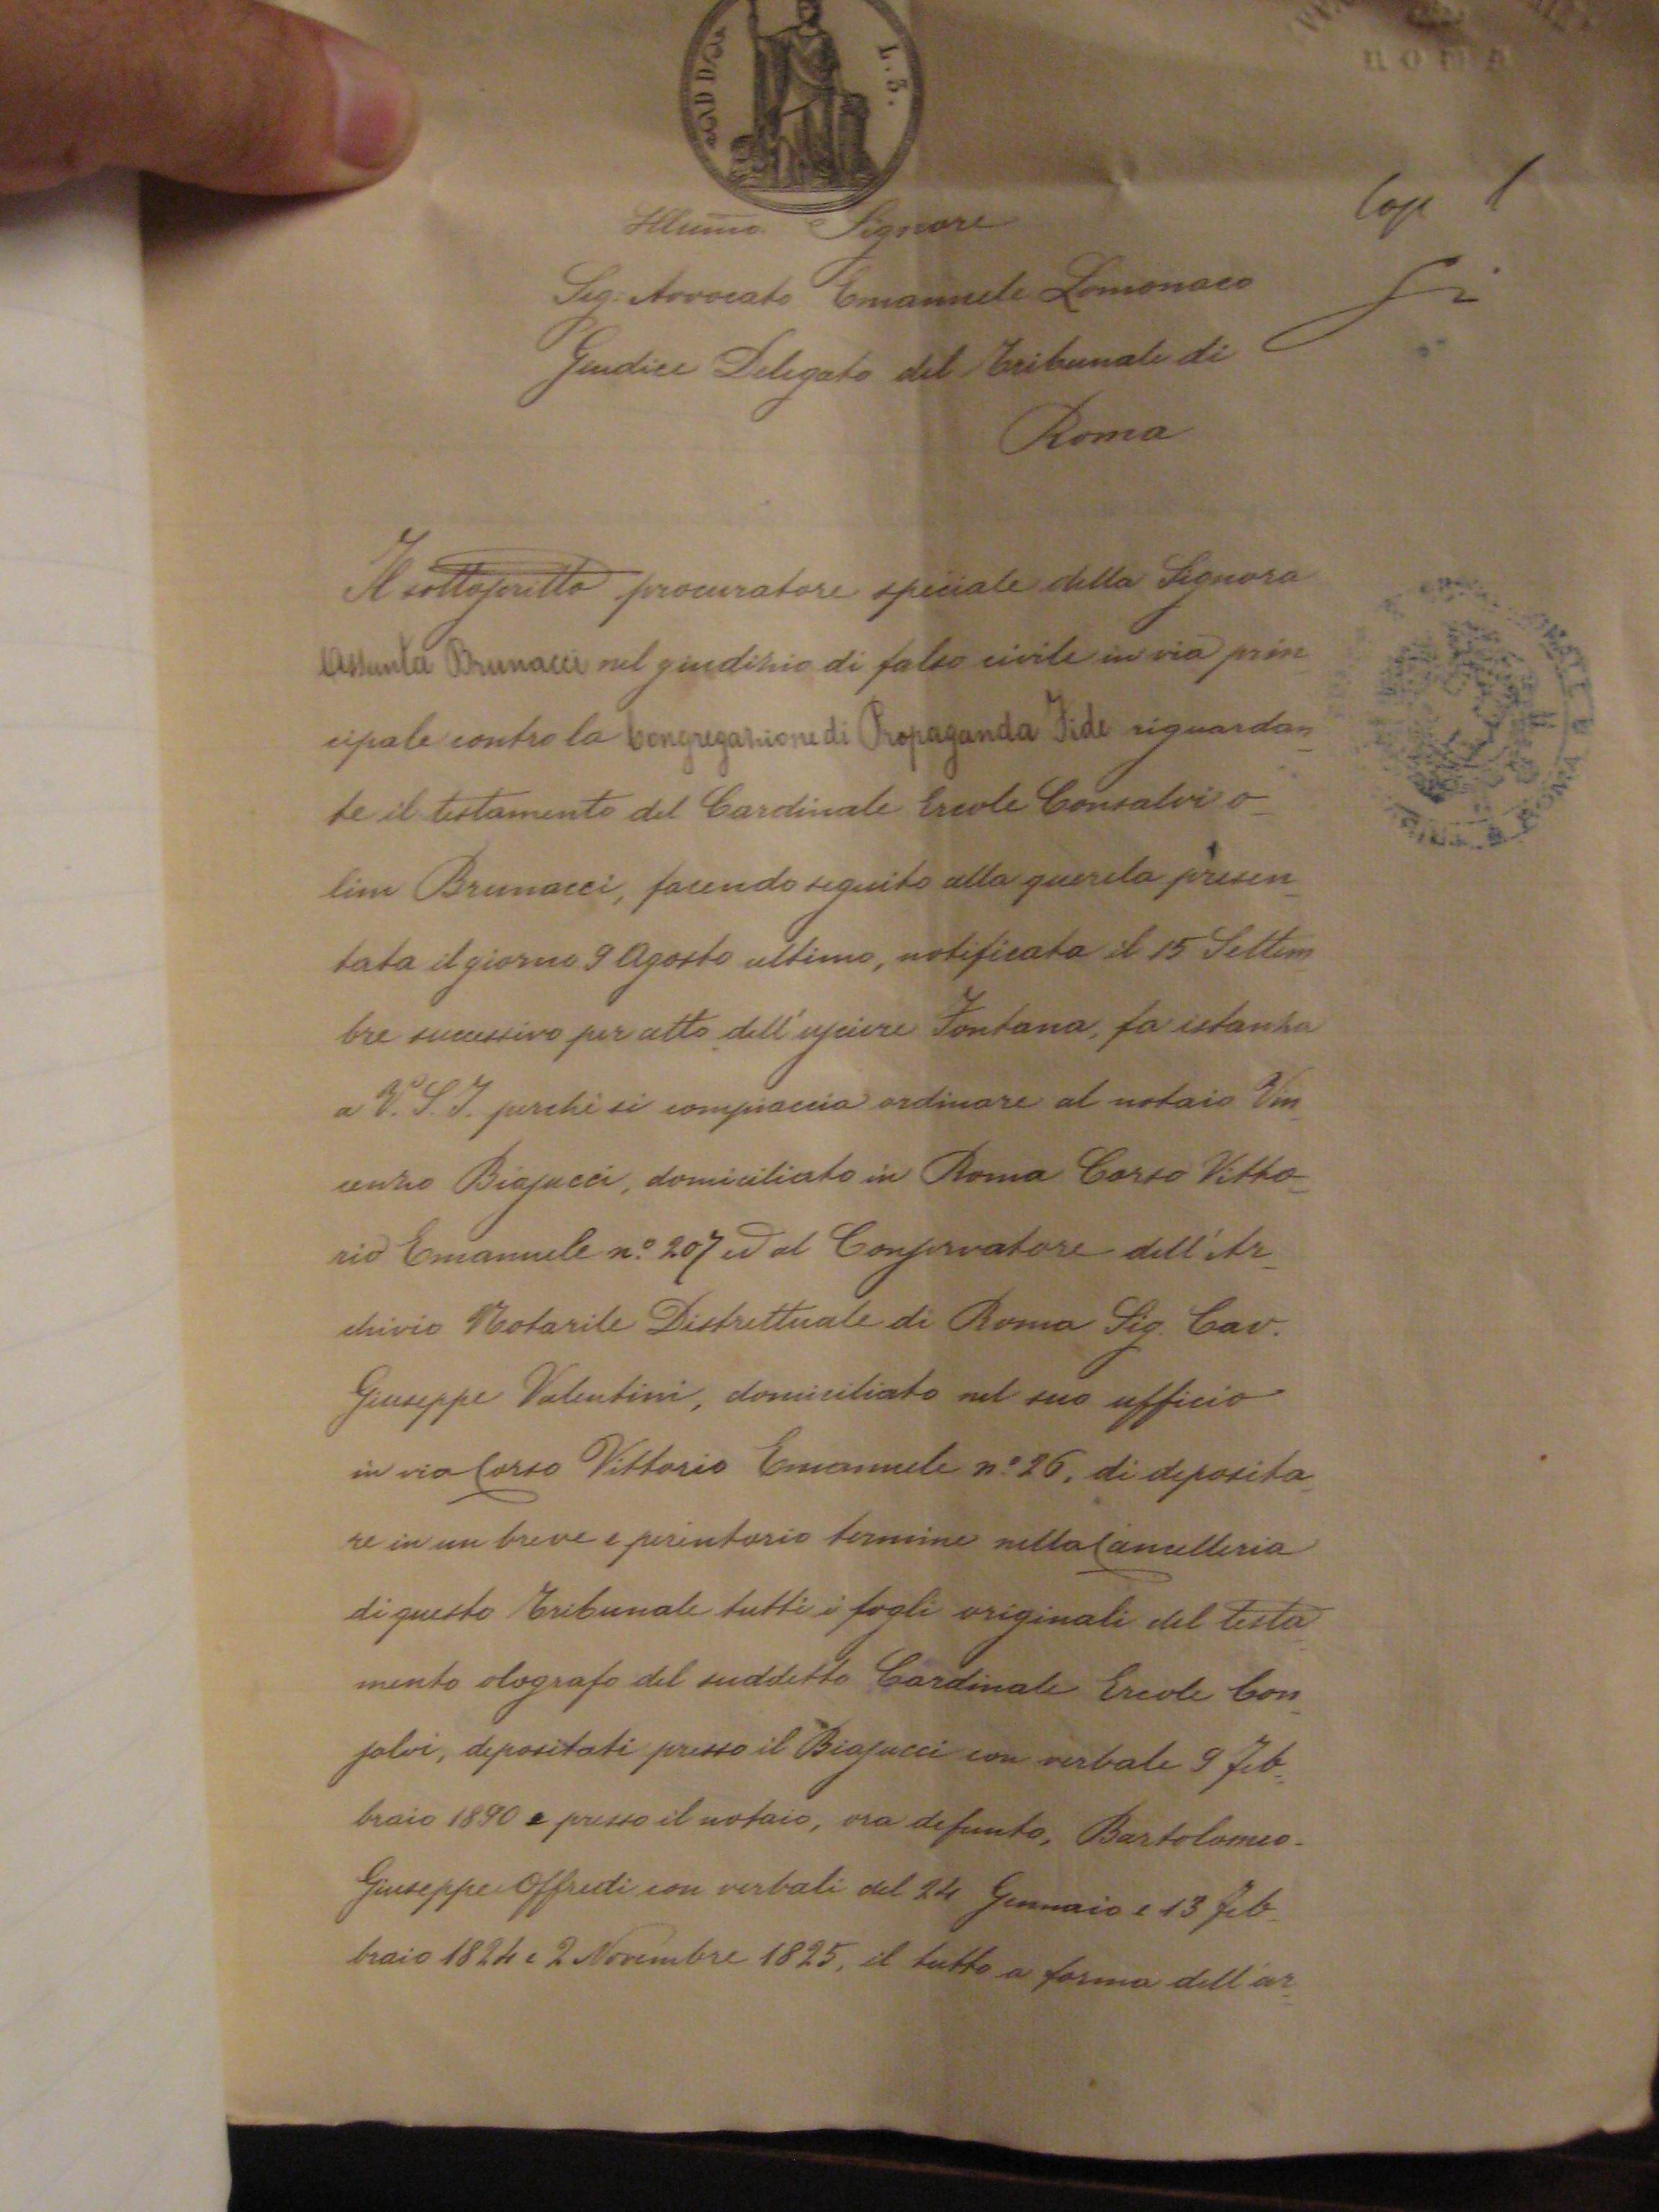 L. 3.
ROMA
Illumo. Signore
Sig. Avvocato Emanuele Lomonaco
Giudice Delegato del Tribunale di
Roma
Il sottoscritto procuratore speciale della Signora
Assunta Brunacci nel giudizio di falso civile in via prin
cipale contro la Congregazione di Propaganda Fide riguardan
te il testamento del Cardinale Ercole Consalvi o
lim Brunacci, facendo seguito alla querela presen
tata il giorno 9 Agosto ultimo, notificata il 15 Settem
bre successivo per atto dell'usciere Fontana, fa istanza
a V. S. I. perchè si compiaccia ordinare al notaio Vin
cenzo Biasucci, domiciliato in Roma Corso Vitto
rio Emanuele n.º 207 ed al Conservatore dell'Ar
chivio Notarile Distrettuale di Roma Sig. Cav.
Giuseppe Valentini, domiciliato nel suo ufficio
in via Corso Vittorio Emanuele n.º 26, di deposita
re in un breve e perentorio termine nella Cancelleria
di questo Tribunale tutti i fogli originali del testa
mento olografo del suddetto Cardinale Ercole Con
salvi, depositati presso il Biasucci con verbale 9 Feb
braio 1890 e presso il notaio, ora defunto, Bartolomeo
Giuseppe Offredi con verbali del 24 Gennaio e 13 Feb
braio 1824 e 2 Novembre 1825, il tutto a forma dell'ar